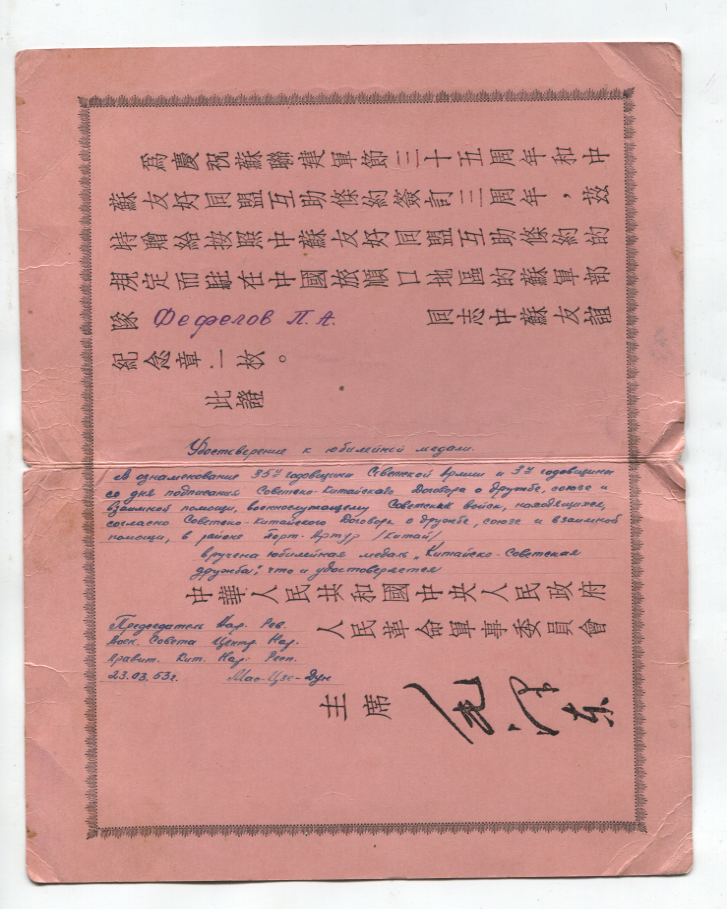 為慶祝蘇聯建軍節三十五周年和中
蘇友好同盟互助條約簽訂三周年，茲
特贈給按照中蘇友好同盟互助條約的
規定而駐在中國旅順口地區的蘇軍部
隊 Фефелов П. А. 同志中蘇友誼
紀念章一枚。
此證
Удостверение к юбилейной медали.
В ознаменование 35й годовщины Советской Армии и 3й годовщины
со дня подписания Советско-Китайского Договора о дружбе, союзе и
взаимной помощи, военнослужащему Советских войск, находящихся,
согласно Советско-Китайского Договора о дружбе, союзе и взаимной
помощи, в районе Порт-Артур /Китай/
вручена юбилейная медаль „Китайско-Советская
дружба", что и удостоверяется
中華人民共和國中央人民政府
人民革命軍事委員會
Председатель Нар. Рев.
Воен. Совета Центр. Нар.
Правит. Кит. Нар. Респ.
23.03.53г. Мао-Цзе-Дун
主席 毛澤东